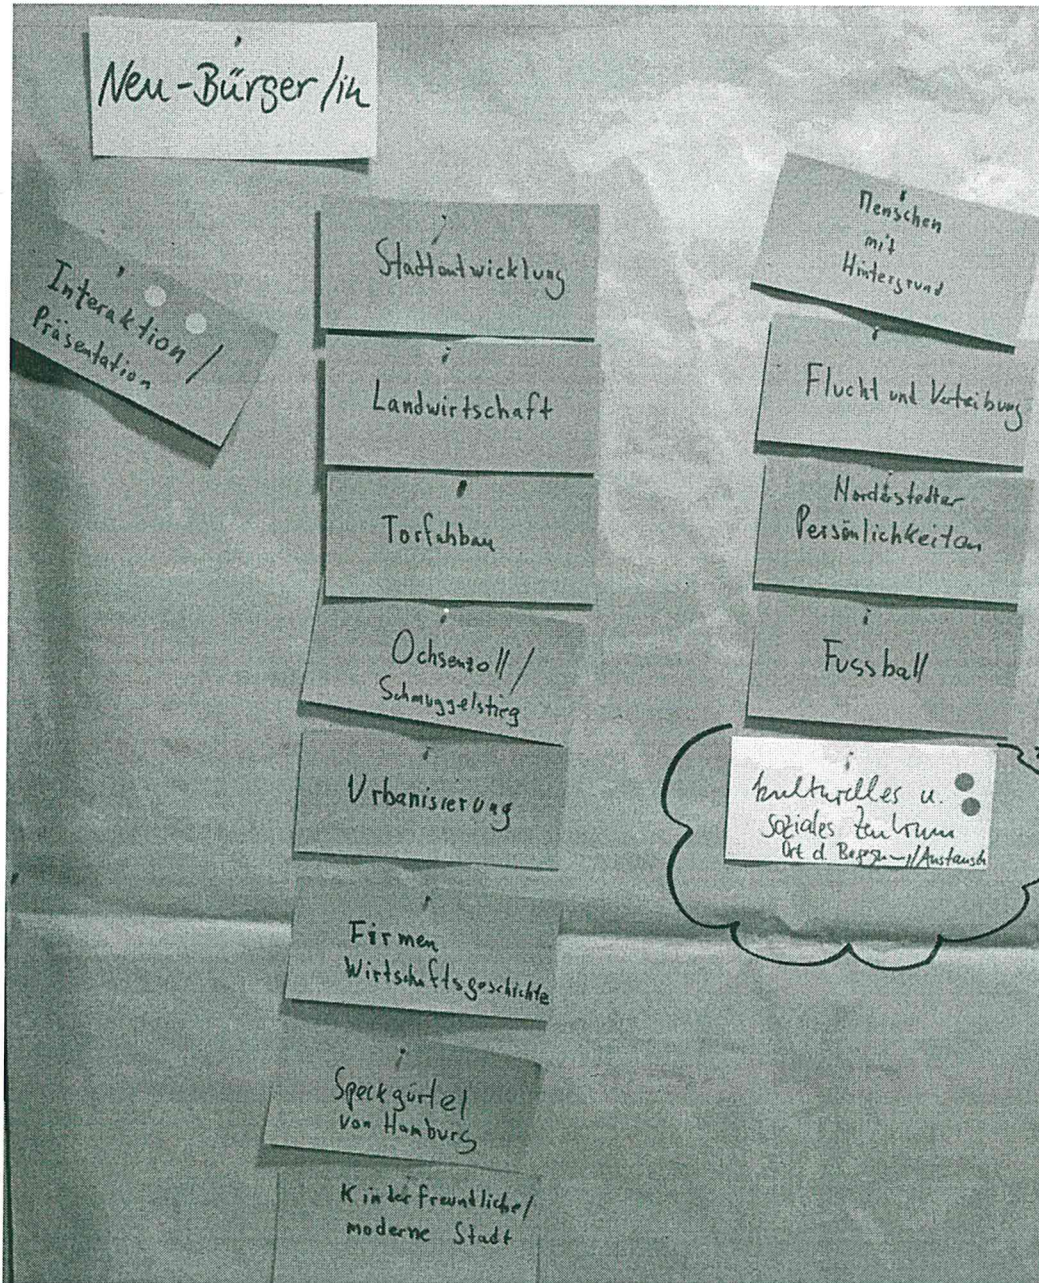 Neu-Bürger/in
Interaktion/
Präsentation
Stadtentwicklung
Landwirtschaft
Torfabbau
Ochsenzoll/
Schmuggelstieg
Urbanisierung
Firmen
Wirtschaftsgeschichte
Speckgürtel
von Hamburg
Kinderfreundliche/
moderne Stadt
Menschen
mit
Hintergrund
Flucht und Vertreibung
Norderstedter
Persönlichkeiten
Fussball
kulturelles u.
soziales Zentrum
Ort d. Begegnung/Austausch